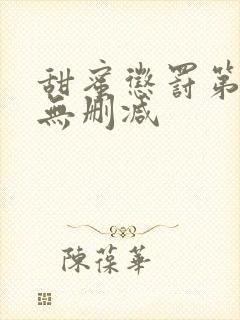 甜蜜懲罰第
無刪减
陳葆華